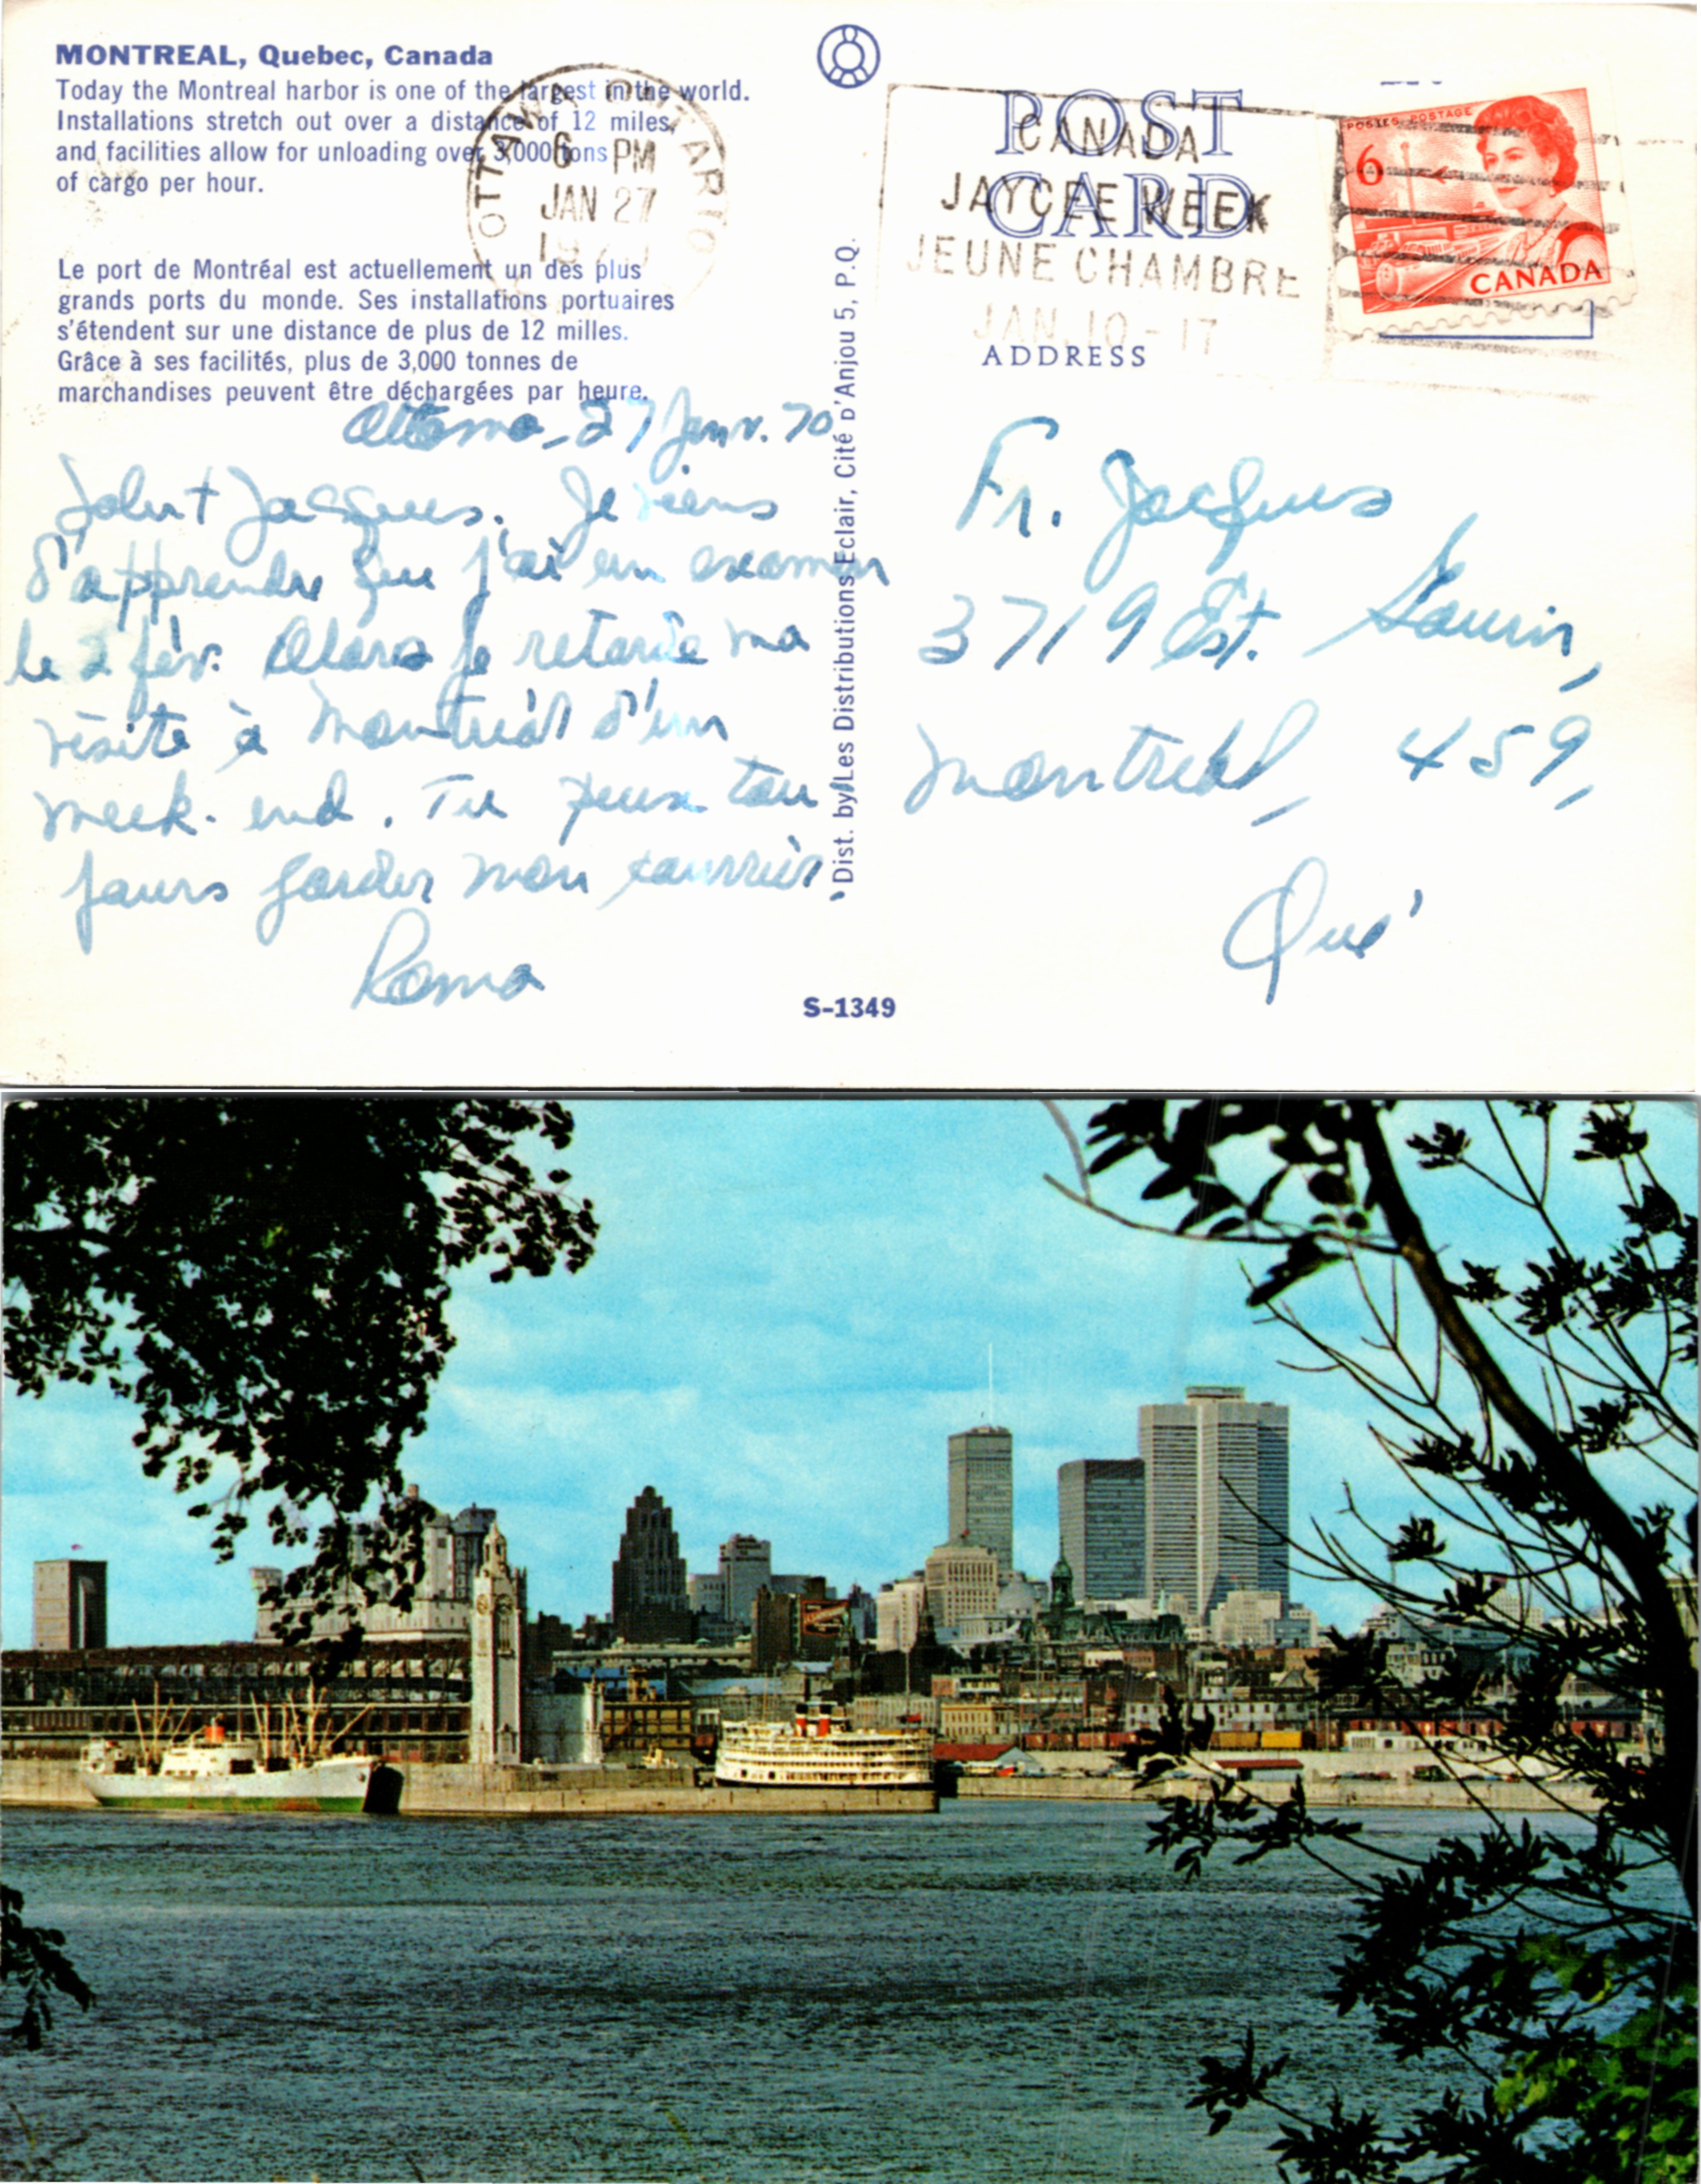 MONTREAL, Quebec, Canada
Today the Montreal harbor is one of the largest in the world.
Installations stretch out over a distance of 12 miles,
and facilities allow for unloading over 3,000 tons
of cargo per hour.
Le port de Montréal est actuellement un des plus
grands ports du monde. Ses installations portuaires
s'étendent sur une distance de plus de 12 milles.
Grâce à ses facilités, plus de 3,000 tonnes de
marchandises peuvent être déchargées par heure.
OTTAWA ONTARIO
6 PM
JAN 27
1970
Ottawa, 27 Janv. 70
Salut Jacques. Je viens
d'apprendre que j'ai un examen
le 2 fév. Alors je retarde ma
visite à Montréal d'un
week-end. Tu peux tou
jours garder mon courrier.
Roma
Dist. by/Les Distributions Eclair, Cité D'Anjou 5, P.Q.
S-1349
POST
CARD
ADDRESS
CANADA
JAYCEE WEEK
JEUNE CHAMBRE
JAN. 10 - 17
POSTES POSTAGE
6
CANADA
Fr. Jacques
3719 Est. Saurin,
Montréal, 459,
Qué